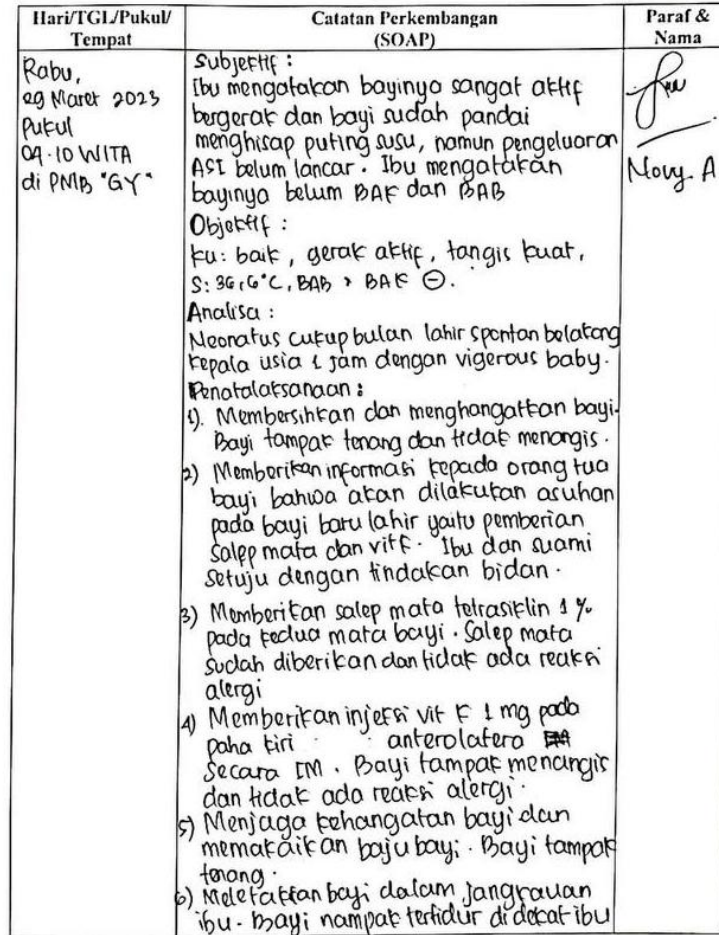 Hari/TGL/Pukul/
Tempat
Catatan Perkembangan
(SOAP)
Paraf &
Nama
Rabu,
29 Maret 2023
Pukul
09.10 WITA
di PMB "GY"
Subjektif :
Ibu mengatakan bayinya sangat aktif
bergerak dan bayi sudah pandai
menghisap puting susu, namun pengeluaran
ASI belum lancar. Ibu mengatakan
bayinya belum BAK dan BAB
Objektif :
ku: baik, gerak aktif, tangis kuat,
S: 36,6°C, BAB, BAK ⊖.
Analisa :
Neonatus cukup bulan lahir spontan belakang
kepala usia 1 jam dengan vigerous baby.
Penatalaksanaan :
1). Membersihkan dan menghangatkan bayi.
Bayi tampak tenang dan tidak menangis.
2) Memberikan informasi kepada orang tua
bayi bahwa akan dilakukan asuhan
pada bayi baru lahir yaitu pemberian
salep mata dan vit K. Ibu dan suami
setuju dengan tindakan bidan.
3) Memberikan salep mata tetrasiklin 1 %
pada kedua mata bayi. Salep mata
sudah diberikan dan tidak ada reaksi
alergi
4) Memberikan injeksi vit K 1 mg pada
paha kiri anterolatero
secara IM. Bayi tampak menangis
dan tidak ada reaksi alergi.
5) Menjaga kehangatan bayi dan
memakaikan baju bayi. Bayi tampak
tenang.
6) Meletakkan bayi dalam jangkauan
ibu. Bayi nampak tertidur di dekat ibu
Novy. A